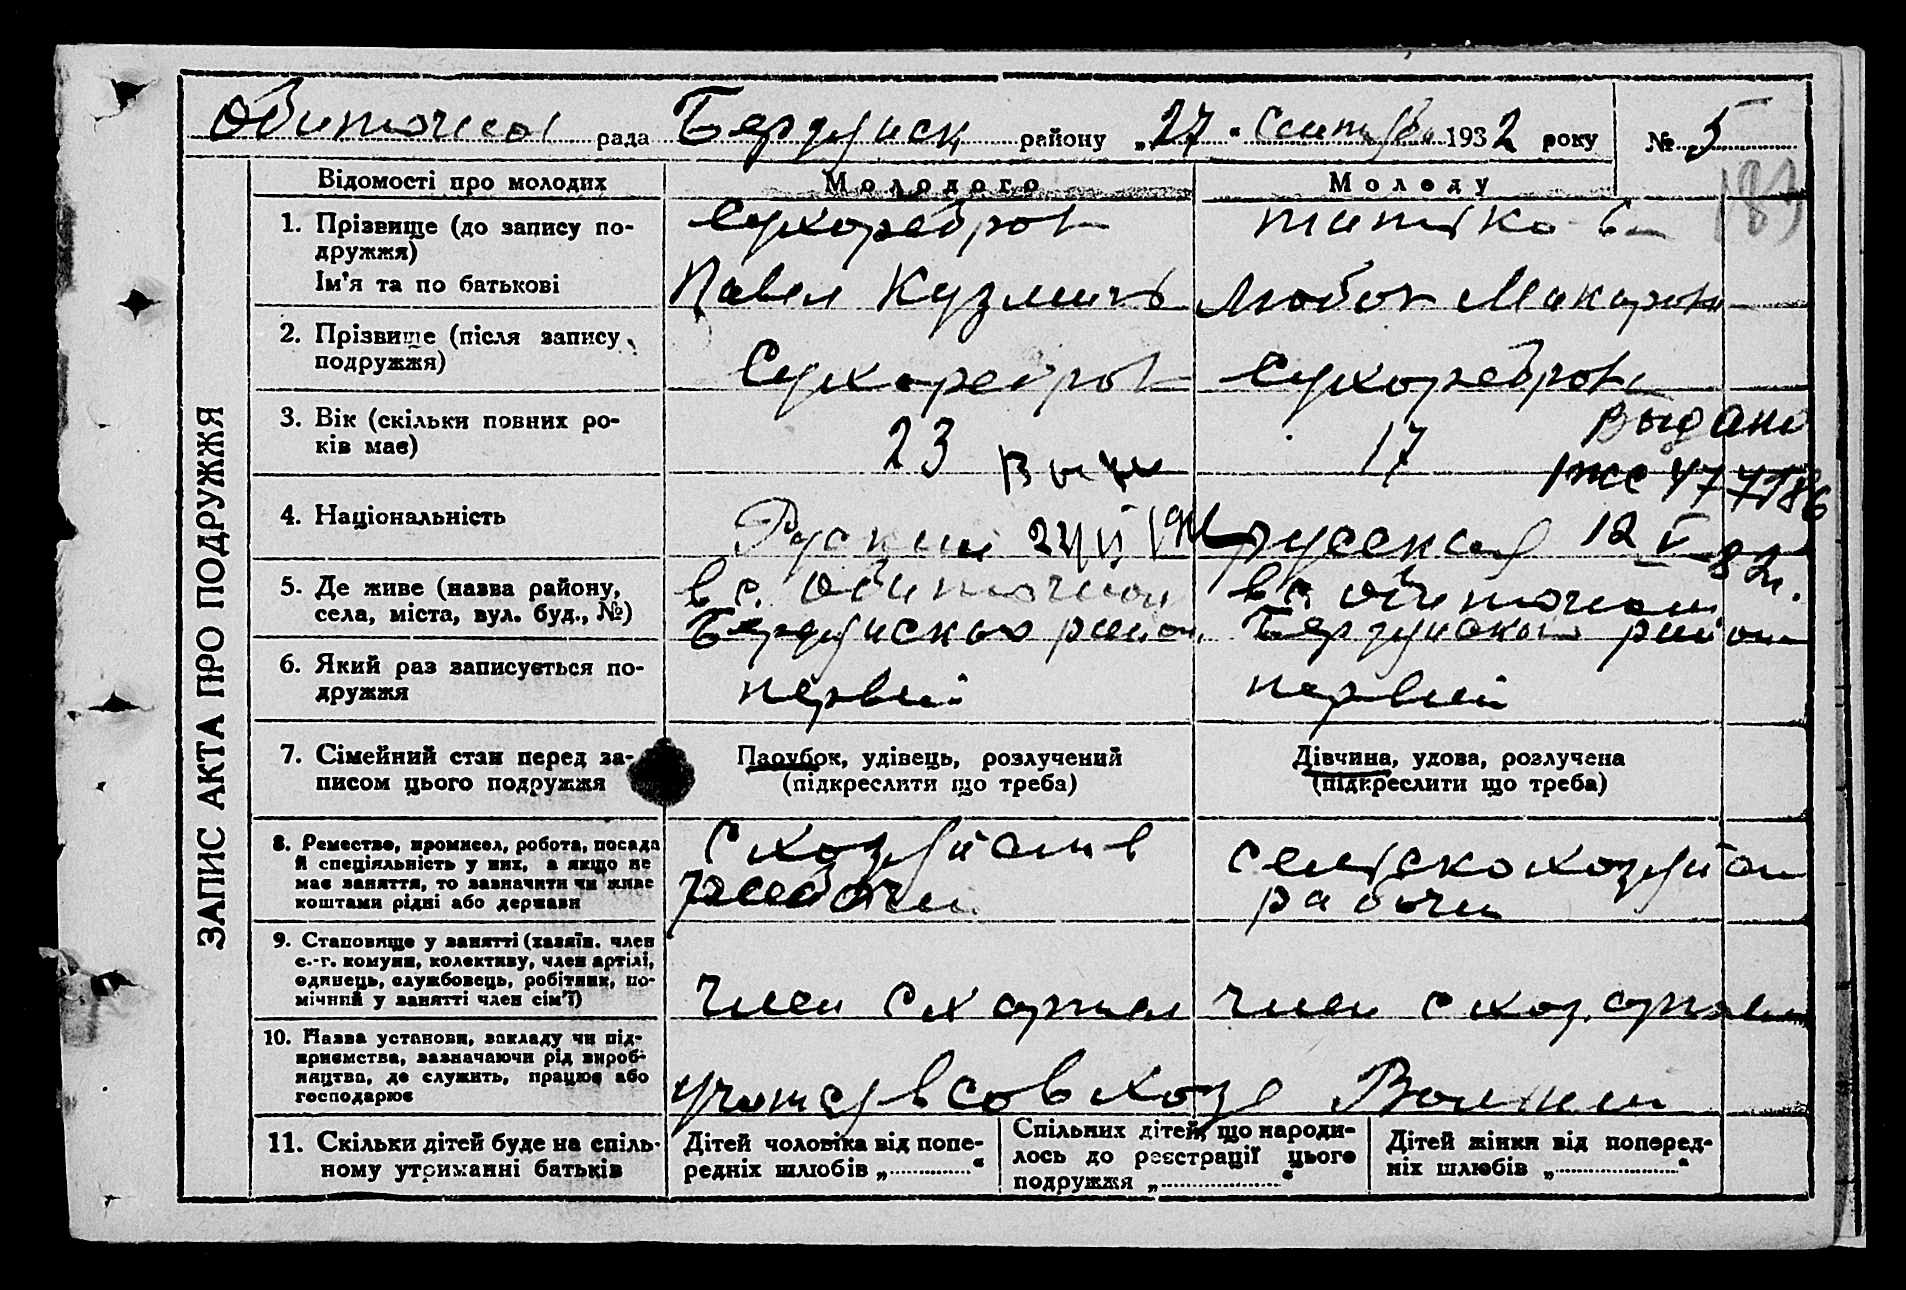 Обиточной рада Бердянск району „27“ Сентября 1932 року № 5
189
Відомості про молодих Молодого Молоду
1. Прізвище (до запису по-
дружжя)
Сухоребров
Ім'я та по батькові
Павел Кузмичь Любов Макаров
2. Прізвище (після запису
подружжя)
Сухоребров Сухоребров
3. Вік (скільки повних ро-
ків має)
23 17
Выдано
4. Національність
Руский русская 12 V 82г.
5. Де живе (назва району,
села, міста, вул. буд., №)
в с. Обиточной в с. Обиточном
Бердянского район. Бердянского район
6. Який раз записується по-
дружжя
первый первый
7. Сімейний стан перед за-
писом цього подружжя
Парубок, удівець, розлучений
(підкреслити що треба)
Дівчина, удова, розлучена
(підкреслити що треба)
8. Ремество, промисел, робота, посада
й спеціяльність у них, а якщо не
має заняття, то зазначити чи живе
коштами рідні або держави
рабочи
сельскохозяйс
рабочи
9. Становище у занятті (хазяїн. член
с.-г. комуни, колективу, член артілі,
одинець, службовець, робітник, по-
мічний у занятті член сім'ї)
член сх артел член с хоз. артели
10. Назва установи, закладу чи під-
приємства, зазначаючи рід вироб-
ництва, де служить, працює або
господарює
в совхозе
11. Скільки дітей буде на спіль-
ному утриманні батьків
Дітей чоловіка від попе-
редніх шлюбів „..............“
Спільних дітей, що народи-
лось до реєстрації цього
подружжя „..............“
Дітей жінки від поперед-
ніх шлюбів „..............“
ЗАПИС АКТА ПРО ПОДРУЖЖЯ